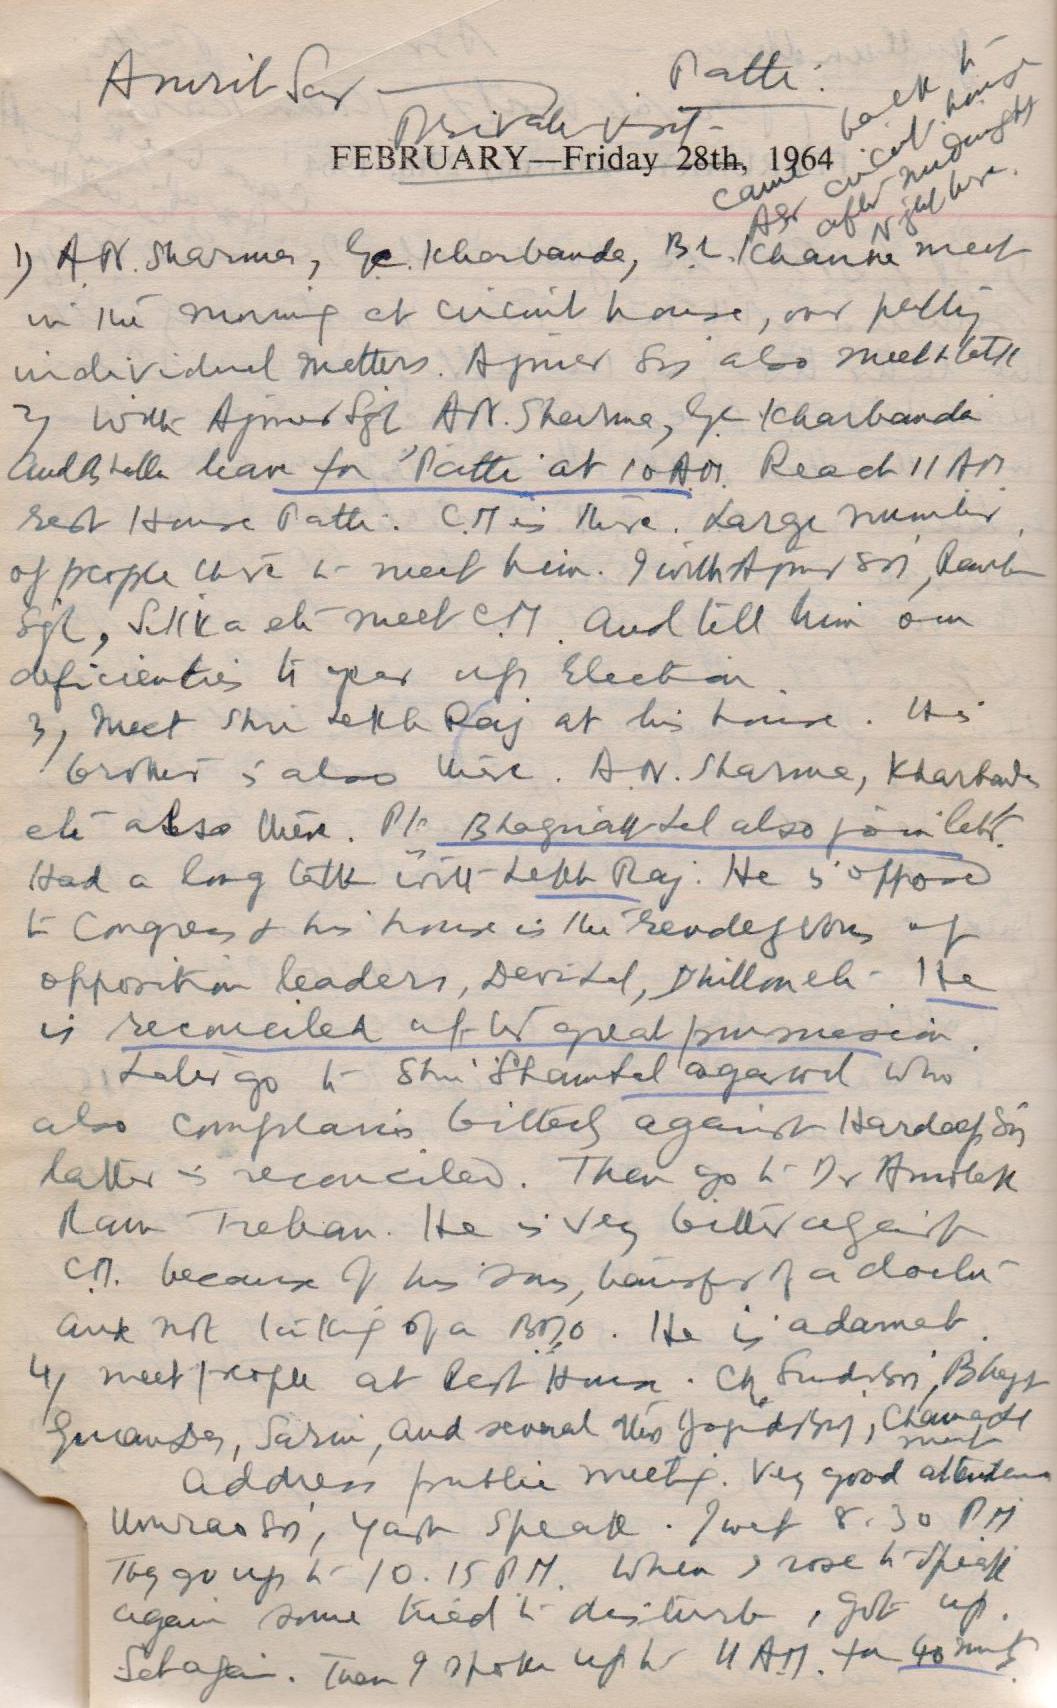 Amritsar Patti.
Private visit
FEBRUARY—Friday 28th, 1964
came back to
Asr circuit house
after midnight
Night here.
1) A.N. Sharma, Kharbanda, B.L. Khanna meet
in the morning at circuit house, over petty
individual matters. Ajmer Sin also meet & talk
2) With Ajmer Sgh A.N. Sharma, Kharbanda
and leave for 'Patti' at 10 A.M. Reach 11 AM
rest House Patti. C.M is there. Large number
of people there to meet him. I with Ajmer Sin,
Sgh, etc meet C.M. and tell him our
deficienties to gear up Election.
3) Meet Shri Lekh Raj at his house. His
brother is also there. A.N. Sharma, Kharbanda
etc also there. Pt. Bhagwat Lal also join latr.
Had a long talk with Lekh Raj. He is opposed
to Congress & his house is the rendezvous of
opposition leaders, Devi Lal, Dhillon etc. He
is reconciled after great persuasion.
Later go to Shri Sham Lal agarwal who
also complains bitterly against Hardeep Sin
latter is reconciled. Then go to Dr Amolak
Ram Trehan. He is very bitter against
C.M. because of his son, transfer of a doctor
and not taking of a BDO. He is adamat.
4) meet people at Rest House. Ch. Sin, Bhagt
Guran Das, Sarin, and several others,
meet
address public meeting. Very good attendance
Umrao Sin, Yash speak. I wet 8.30 P.M
They go up to 10.15 P.M. When I rose to speak
again some tried to disturb, got up.
Sat again. Then I spoke up to 11 A.M. for 40 mnts.